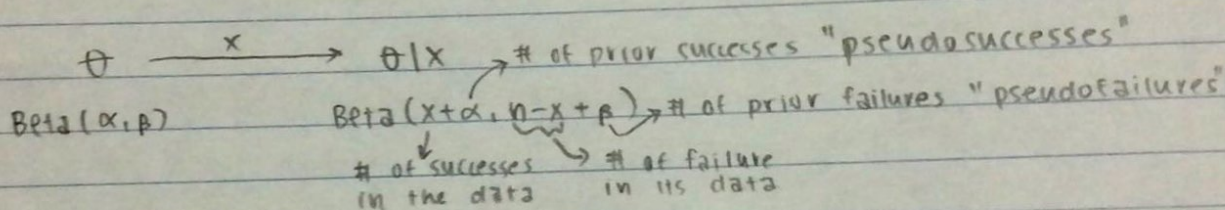 θ —x→ θ|X → # of prior successes "pseudosuccesses"
Beta(α, β) Beta(x+α, n-x+β) → # of prior failures "pseudofailures"
# of successes → # of failure
in the data in its data